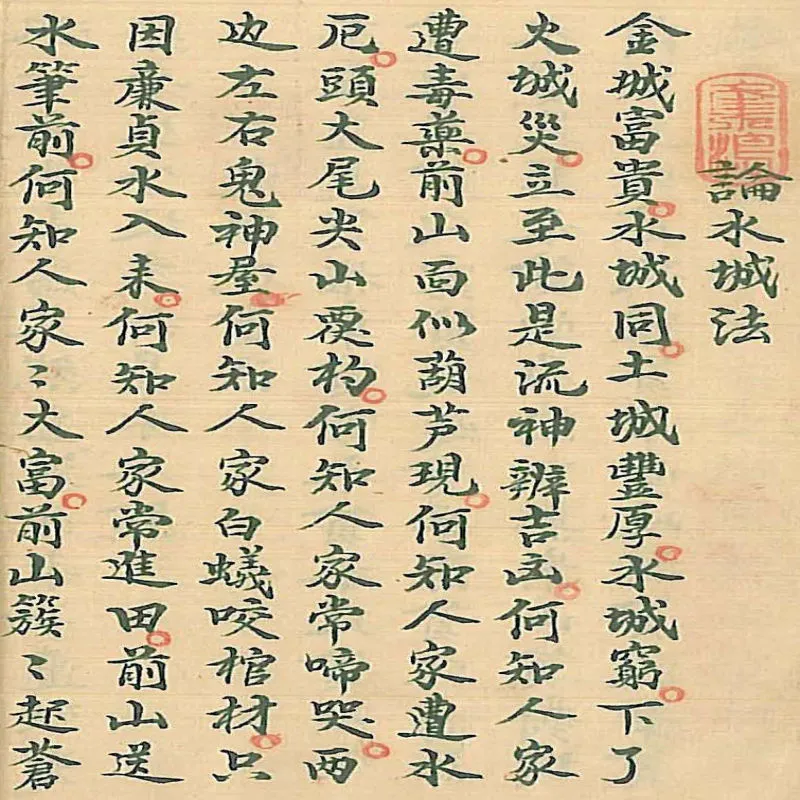 論水城法
金城富貴。水城同。土城豐厚。水城窮。下了
火城災。立至此是流神辨吉凶。何知人家
遭毒藥。前山面似葫芦現。何知人家遭水
厄。頭大尾尖山覆杓。何知人家常啼哭。兩
边左右鬼神屋。何知人家白蟻咬棺材。只
因廉貞水入来。何知人家常進田。前山送
水筆前。何知人家〻大富。前山簇〻起蒼